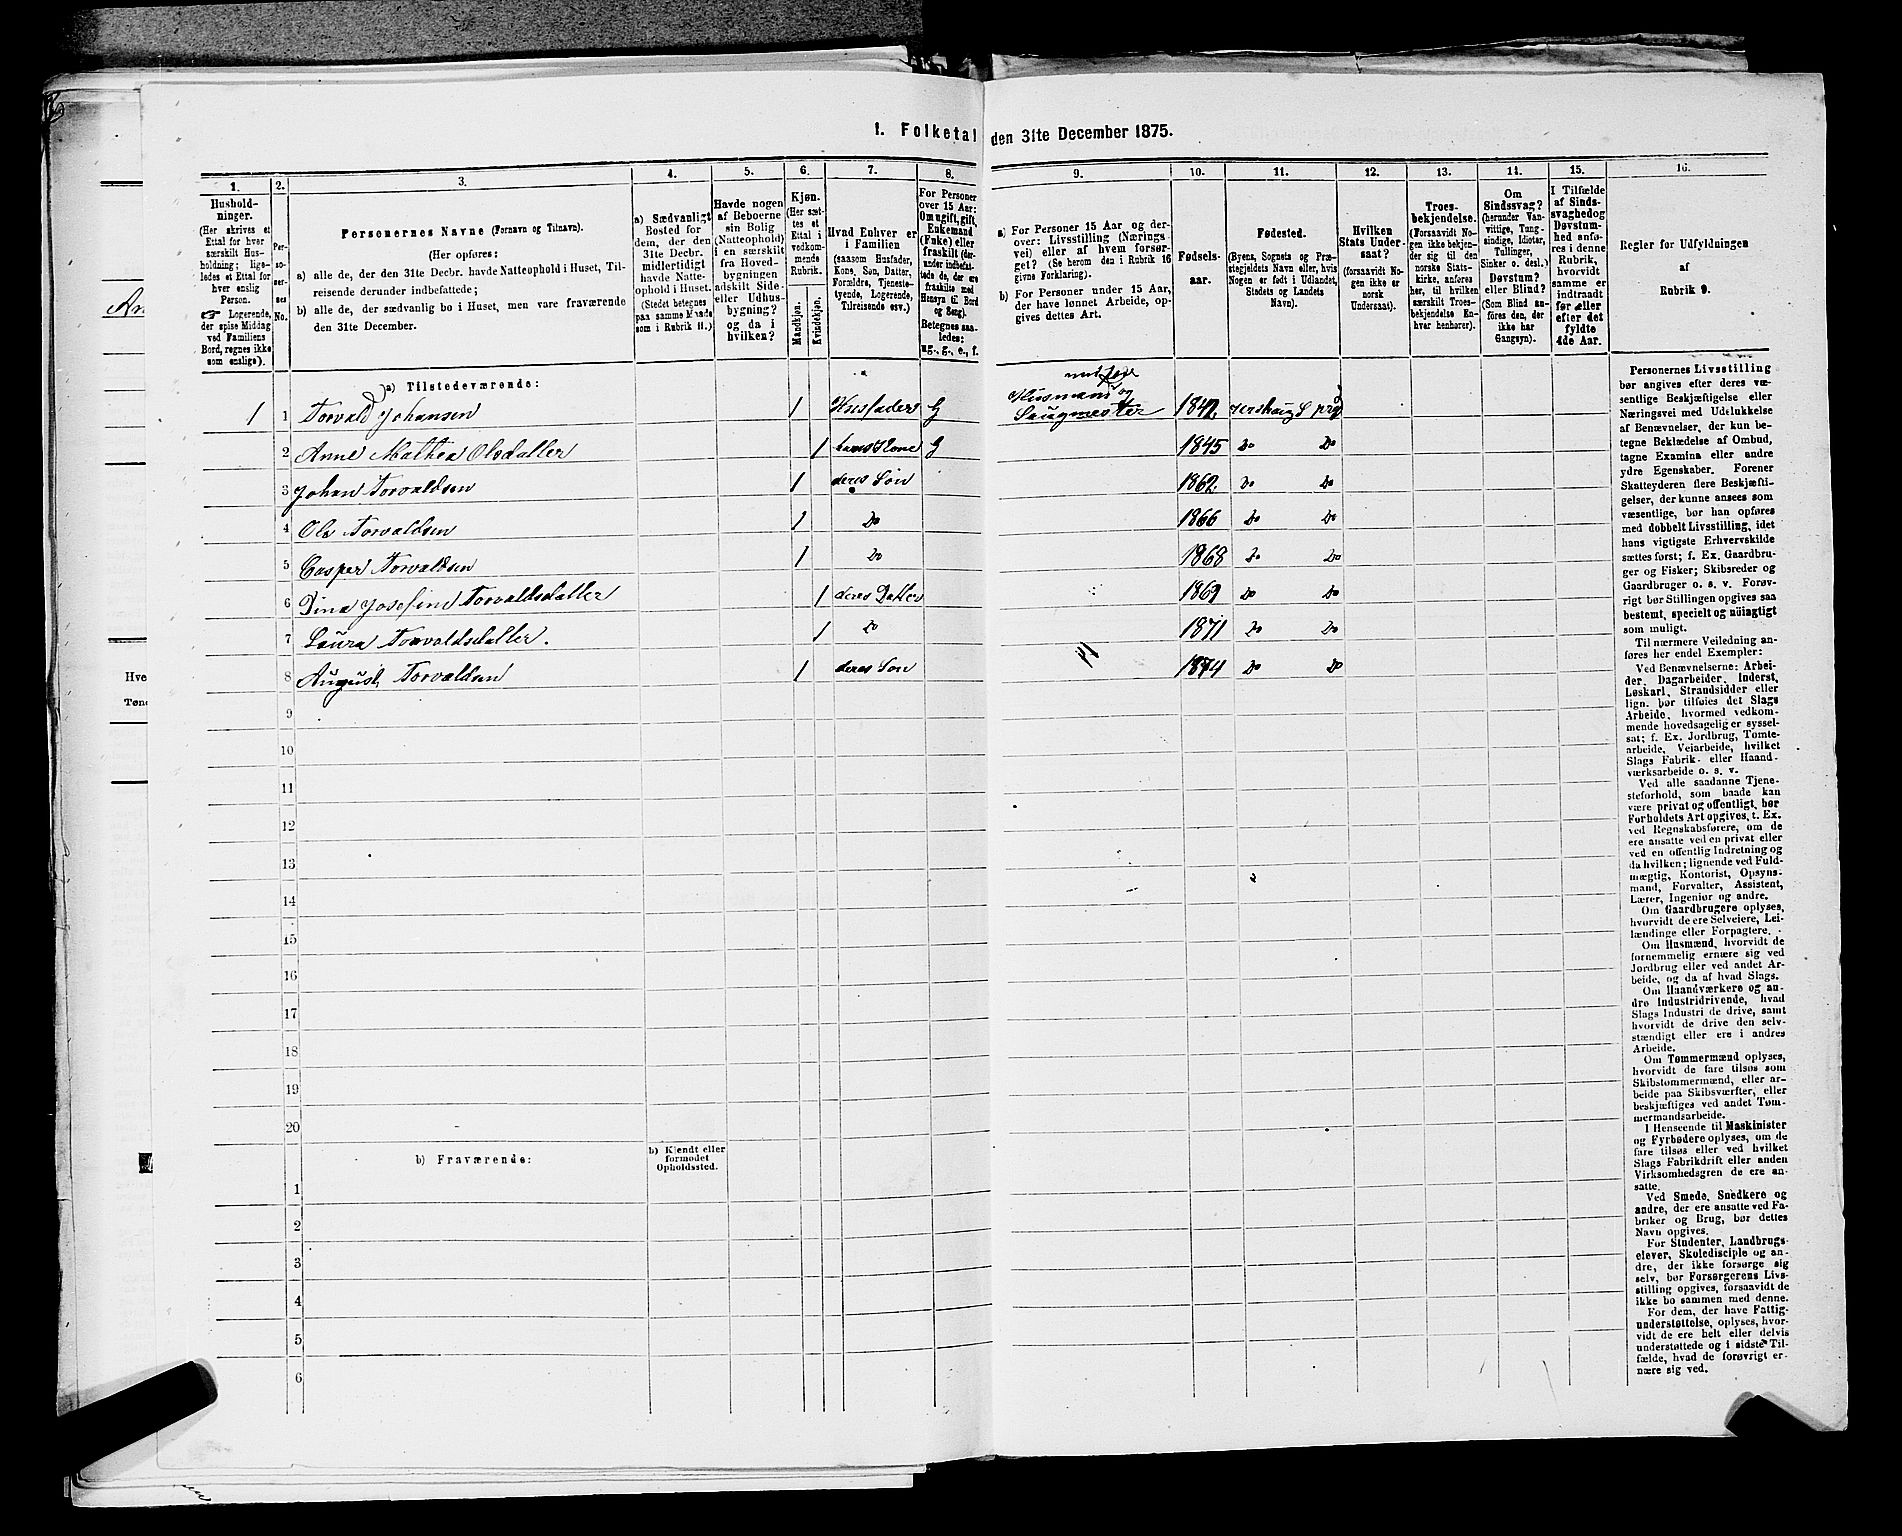 1. Folketal den 31te December 1875.
1. 2. 3. 4. 5. 6. 7. 8. 9. 10. 11. 12. 13. 14. 15. 16.
Hushold-
ninger.
(Her skrives et
Ettal for hver
særskilt Hus-
holdning; lige-
ledes et Ettal for
hver enslig
Person.
☞ Logerende,
der spise Middag
ved Familiens
Bord, regnes ikke
som enslige).
Per-
so-
ner-
nes
No.
Personernes Navne (Fornavn og Tilnavn).
(Her opføres:
a) alle de, der den 31te Decbr. havde Natteophold i Huset, Til-
reisende derunder indbefattede;
b) alle de, der sædvanlig bo i Huset, men vare fraværende
den 31te December.
a) Sædvanligt
Bosted for
dem, der den
31te Decbr.
midlertidigt
havde Natte-
ophold i Huset.
(Stedet betegnes
paa samme Maade
som i Rubrik 11.)
Havde nogen
af Beboerne
sin Bolig
(Natteophold)
i en særskilt
fra Hoved-
bygningen
adskilt Side-
eller Udhus-
bygning?
og da i
hvilken?
Kjøn.
(Her sæt-
tes et
Ettal i
vedkom-
mende
Rubrik.
Mandkjøn.
Kvindekjøn.
Hvad Enhver er
i Familien
(saasom Husfader,
Kone, Søn, Datter,
Forældre, Tjeneste-
tyende, Logerende,
Tilreisende osv.)
For Personer
over 15 Aar:
Om ugift, gift,
Enkemand
(Enke) eller
fraskilt (der-
under indbefat-
tede de, der ere
fraskilte med
Hensyn til Bord
og Seng).
Betegnes saa-
ledes:
ug., g., e., f.
a) For Personer 15 Aar og der-
over: Livsstilling (Nærings-
vei) eller af hvem forsør-
get? (Se herom den i Rubrik 16
givne Forklaring).
b) For Personer under 15 Aar,
der have lønnet Arbeide, op-
gives dettes Art.
Fødsels-
aar.
Fødested.
(Byens, Sognets og Præ-
stegjeldets Navn eller, hvis
Nogen er født i Udlandet,
Stedets og Landets
Navn).
Hvilken
Stats Under-
saat?
(forsaavidt No-
gen ikke er
norsk
Undersaat).
Troes-
bekjendelse.
(Forsaavidt No-
gen ikke bekjen-
der sig til den
norske Stats-
kirke, anføres
her, til hvilken
særskilt Troes-
bekjendelse En-
hver henhører).
Om
Sindssvag?
(herunder Van-
vittige, Tung-
sindige, Idioter,
Tullinger,
Sinker o. desl.)
Døvstum?
eller Blind?
(Som Blind an-
føres den, der
ikke har
Gangsyn).
I Tilfælde
af Sinds-
svaghed og
Døvstum-
hed anfø-
res i denne
Rubrik,
hvorvidt
samme er
indtraadt
før eller
efter det
fyldte
4de Aar.
Regler for Udfyldningen
af
Rubrik 9.
a) Tilstedeværende:
1 1 Torvald Johansen 1 Husfader G Husmand med jord og Saugmester 1842
2 Anne Mathea Olsdatter 1 hans Kone G 1845 Do Do
3 Johan Torvaldsen 1 deres Søn 1862 Do Do
4 Ole Torvaldsen 1 Do 1866 Do Do
5 Casper Torvaldsen 1 Do 1868 Do Do
6 Dina Josefine Torvaldsdatter 1 deres Datter 1869 Do Do
7 Laura Torvaldsdatter. 1 Do 1871 Do Do
8 August Torvaldsen 1 deres Søn 1874 Do Do
9
10
11
12
13
14
15
16
17
18
19
20
b) Fraværende:
b) Kjendt eller
formodet
Opholdssted.
1
2
3
4
5
6
Personernes Livsstilling
bør angives efter deres væ-
sentlige Beskjæftigelse eller
Næringsvei med Udelukkelse
af Benævnelser, der kun be-
tegne Beklædelse af Ombud,
tagne Examina eller andre
ydre Egenskaber. Forener
Skatteyderen flere Beskjæfti-
gelser, der kunne ansees som
væsentlige, bør han opføres
med dobbelt Livsstilling, idet
hans vigtigste Erhvervskilde
sættes først; f. Ex. Gaardbru-
ger og Fisker; Skibsreder og
Gaardbruger o. s. v. Forøv-
rigt bør Stillingen opgives saa
bestemt, specielt og nøiagtigt
som muligt.
Til nærmere Veiledning an-
føres her endel Exempler:
Ved Benævnelserne: Arbei-
der, Dagarbeider, Inderst,
Løskarl, Strandsidder eller
lign. bør tilføies det Slags
Arbeide, hvormed vedkom-
mende hovedsagelig er syssel-
sat; f. Ex. Jordbrug, Tomte-
arbeide, Veiarbeide, hvilket
Slags Fabrik- eller Haand-
værksarbeide o. s. v.
Ved alle saadanne Tjene-
steforhold, som baade kan
være privat og offentligt, bør
Forholdets Art opgives, t. Ex.
ved Regnskabsførere, om de
ere ansatte ved en privat eller
ved en offentlig Indretning og
da hvilken; lignende ved Fuld-
mægtig, Kontorist, Opsyns-
mand, Forvalter, Assistent,
Lærer, Ingeniør og andre.
Om Gaardbrugere oplyses,
hvorvidt de ere Selveiere, Lei-
lændinge eller Forpagtere.
Om Husmænd, hvorvidt de
fornemmelig ernære sig ved
Jordbrug eller ved andet Ar-
beide, og da af hvad Slags.
Om Haandværkere og an-
dre Industridrivende, hvad
Slags Industri de drive, samt
hvorvidt de drive den selv-
stændigt eller ere i andres
Arbeide.
Om Tømmermænd oplyses,
hvorvidt de fare tilsøs som
Skibstømmermænd, eller ar-
beide paa Skibsværfter, eller
beskjæftiges ved andet Tøm-
mermandsarbeide.
I Henseende til Maskinister
og Fyrbødere oplyses, om de
fare tilsøs eller ved hvilket
Slags Fabrikdrift eller anden
Virksomhedsgren de ere an-
satte.
Ved Smede, Snedkere og
andre, der ere ansatte ved Fa-
briker og Brug, bør dettes
Navn opgives.
For Studenter, Landbrugs-
elever, Skoledisciple og an-
dre, der ikke forsørge sig
selv, bør Forsørgerens Livs-
stilling opgives, forsaavidt de
ikke bo sammen med denne.
For dem, der have Fattig-
understøttelse, oplyses, hvor-
vidt de ere helt eller delvis
understøttede og i sidste Til-
fælde, hvad de forøvrigt er-
nære sig ved.
An
Hve
Tøn